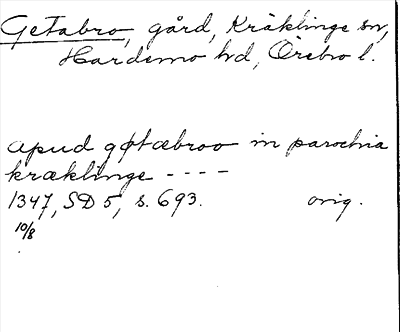 Getabro, gård, Kräklinge sn,
Hardemo hd, Örebro l.
apud gøtæbroo in parochia
kræklinge ----
1347, SD 5, s. 693. orig.
10/8